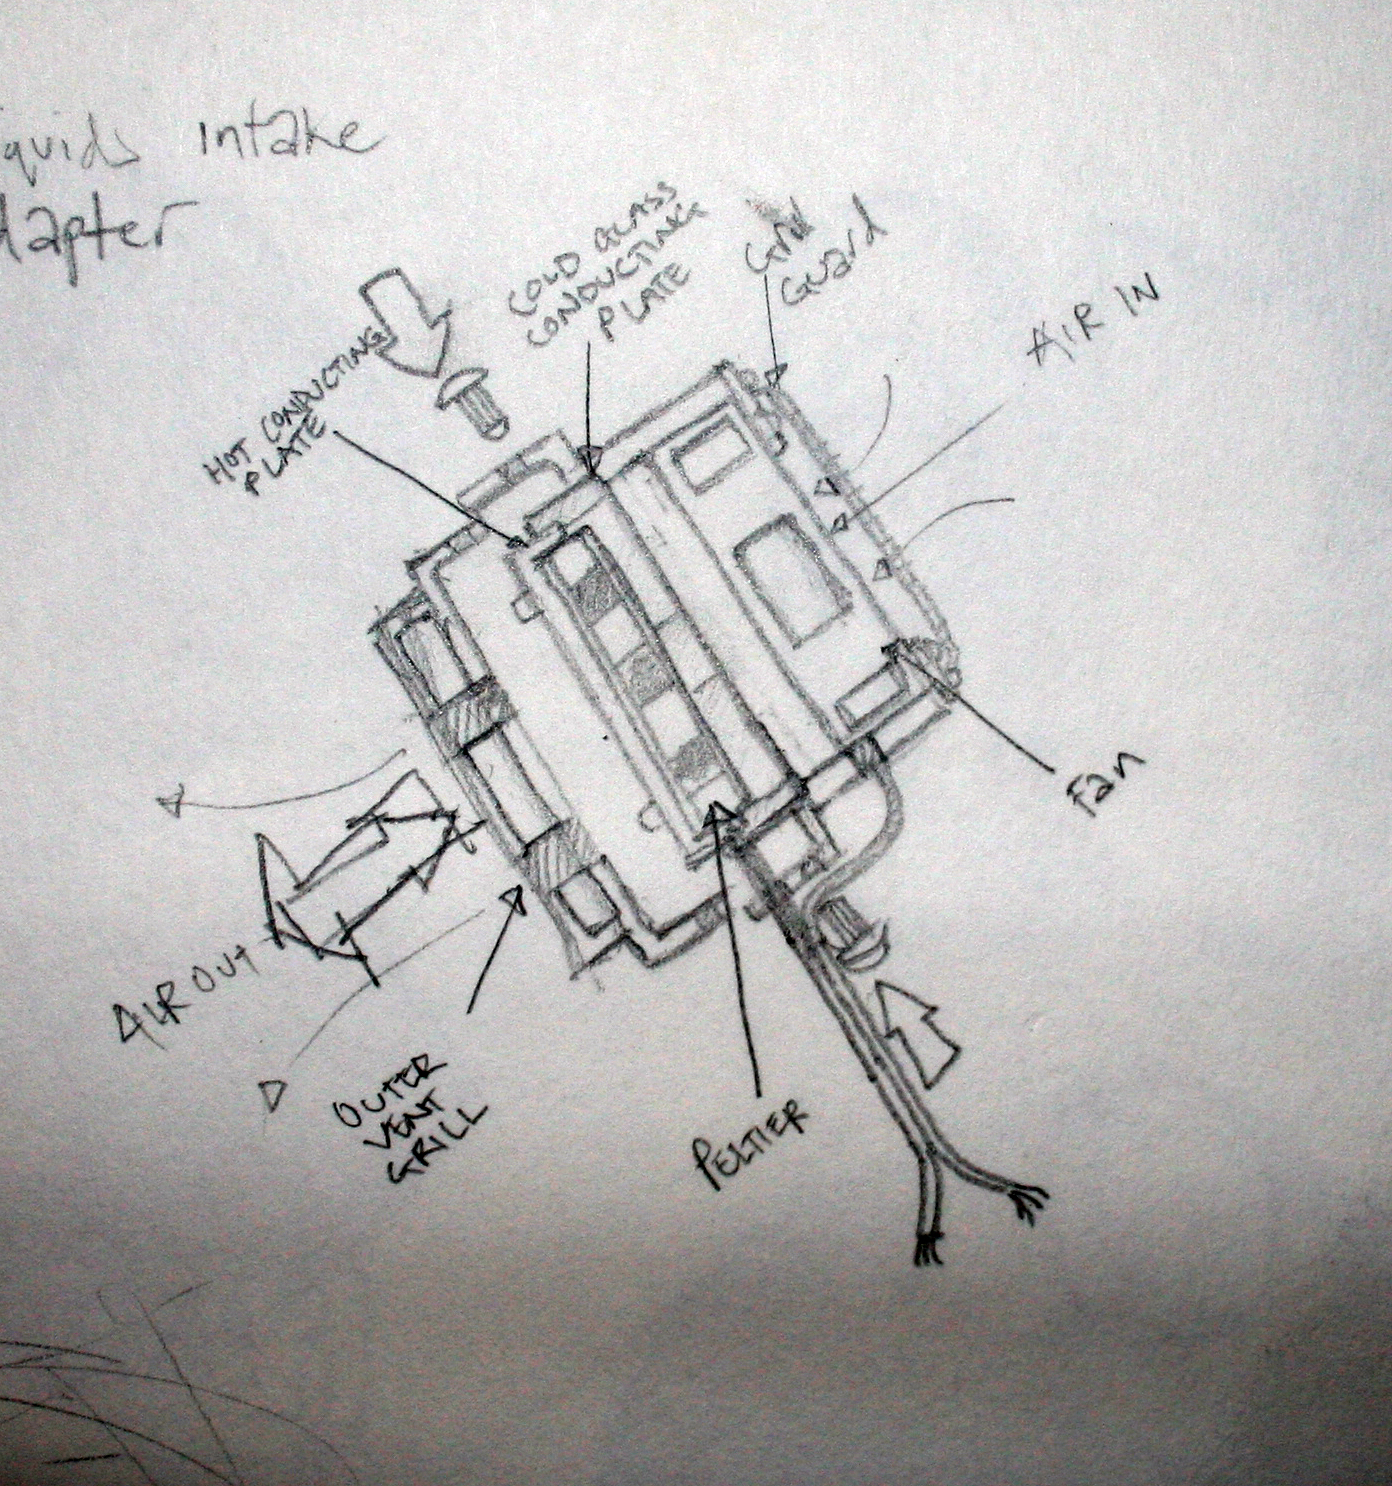 quids intake
dapter
COLD GLASS
CONDUCTING
PLATE
Grill
Guard
AIR IN
HOT CONDUCTING
PLATE
Fan
AIR OUT
OUTER
VENT
GRILL
PELTIER